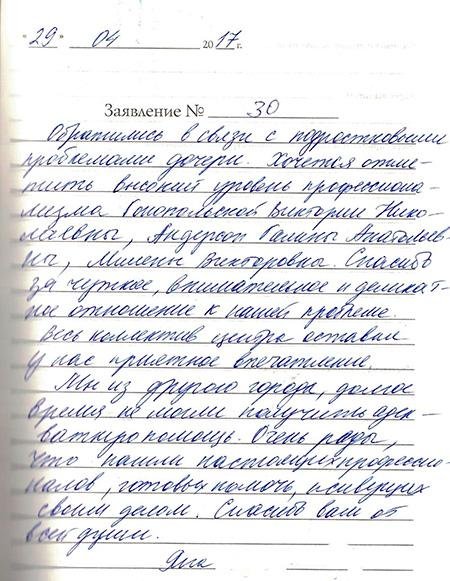 "29" 04 2017 г.
Заявление № 30
Обратились в связи с подростковыми
проблемами дочери. Хочется отме-
тить высокий уровень профессиона-
лизма Гонопольской Виктории Нико-
лаевны, Андерсон Галины Анатольев-
ны, Милены Викторовны. Спасибо
за чуткое, внимательное и деликат-
ное отношение к нашей проблеме.
Весь коллектив центра оставил
у нас приятное впечатление.
Мы из другого города, долгое
время не могли получить адек-
ватную помощь. Очень рады,
что нашли настоящих профессио-
налов, готовых помочь, и живущих
своим делом. Спасибо вам от
всей души.
Яна